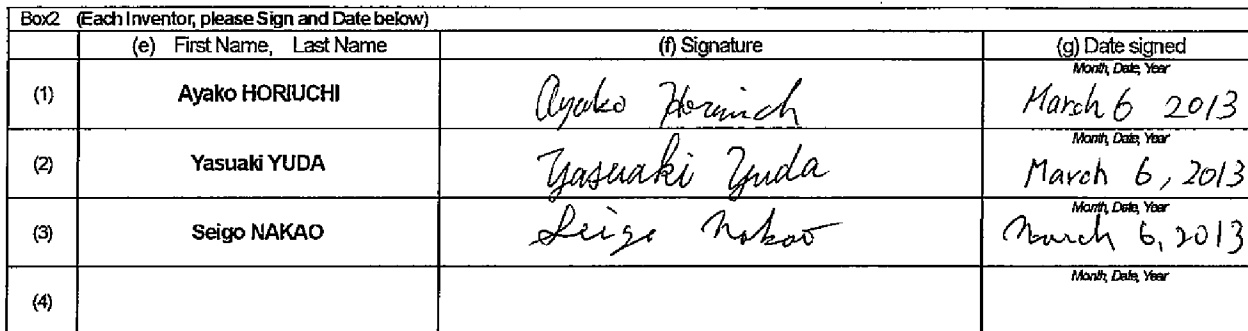 Box2 (Each Inventor, please Sign and Date below)
(e) First Name, Last Name (f) Signature (g) Date signed
(1) Ayako HORIUCHI Ayako Horiuch Month, Date, Year March 6 2013
(2) Yasuaki YUDA Yasuaki Yuda Month, Date, Year March 6, 2013
(3) Seigo NAKAO Seigo Nakao Month, Date, Year March 6, 2013
(4) Month, Date, Year